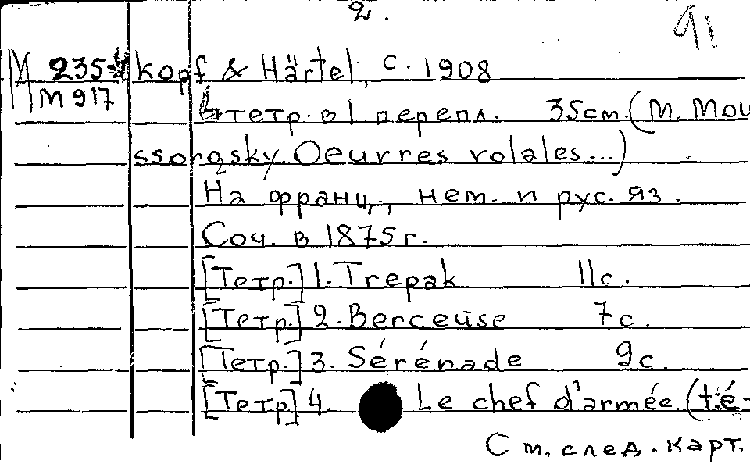 2.
91
M 235 kopf & Härtel, c. 1908
M 917
4 тетр. в 1 перепл. 35 cm. (M. Mou
ssorgsky. Oeuvres volales...)
На франц., нем. и рус. яз.
Соч. в 1875 г.
[Тетр.] 1. Trepak 11 с.
[Тетр.] 2. Berceuse 7 с.
[Тетр.] 3. Sérénade 9 с.
[Тетр.] 4. Le chef d'armée. (té-
См. след. карт.